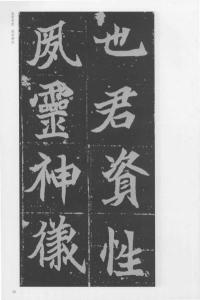 也君資性
夙靈神儀